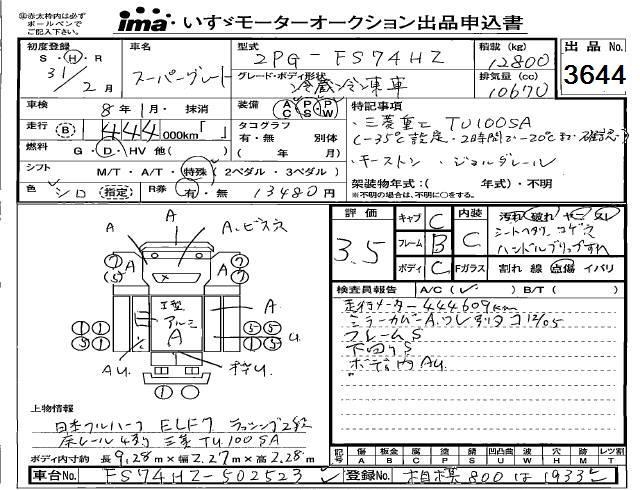 ※赤太枠内は必ずボールペンでご記入下さい。
ima いすゞモーターオークション出品申込書
初度登録 S・H・R 31/2月
車名 スーパーグレート
型式 2PG-FS74HZ
積載(kg) 12800
出品No. 3644
グレード・ボディ形状 冷蔵冷凍車
排気量(cc) 10670
車検 8年1月・抹消
装備 AC PS PW
特記事項
走行(B) 444,000km「 」
タコグラフ 有・無 別体 ( 年 月)
・三菱重工 TU100SA
(-35℃設定・2時間で-20℃まで確認)
燃料 G・D・HV 他( )
・キーストン・ジョルダレール
シフト M/T・A/T・特殊(2ペダル・3ペダル)
架装物年式:( 年式)・不明
※不明の場合は、不明に○をする。
色 シロ (指定)
R券 有・無 13480円
評価 3.5
キャブ C
フレーム B
ボディ C
内装 C
Fガラス
汚れ 破れ ヤニ スレ
シートヘタリ コゲ穴
ハンドルグリップすれ
割れ 線 点傷 イバリ
検査員報告 A/C( ) B/T( )
走行メーター 444609km
ミラーカバーA. ワレ タコ12/05
フレームS
下廻りS
ボデー内AU.
A
A A.ビス穴
A
I型
アルミ
A
A
U.
AU.
ボデーU.
上物情報
日本フルハーフ ELF7 ラッシング2段
床レール4列 三菱TU100SA
ボディ内寸約 長9.28m×幅2.27m×高2.28m
記号 傷A 板金B 腐C 塗P 錆S 凹凸曲U 波W 穴H 跡M レツ割T
車台No. FS74HZ-502523
登録No. 相模800は1933